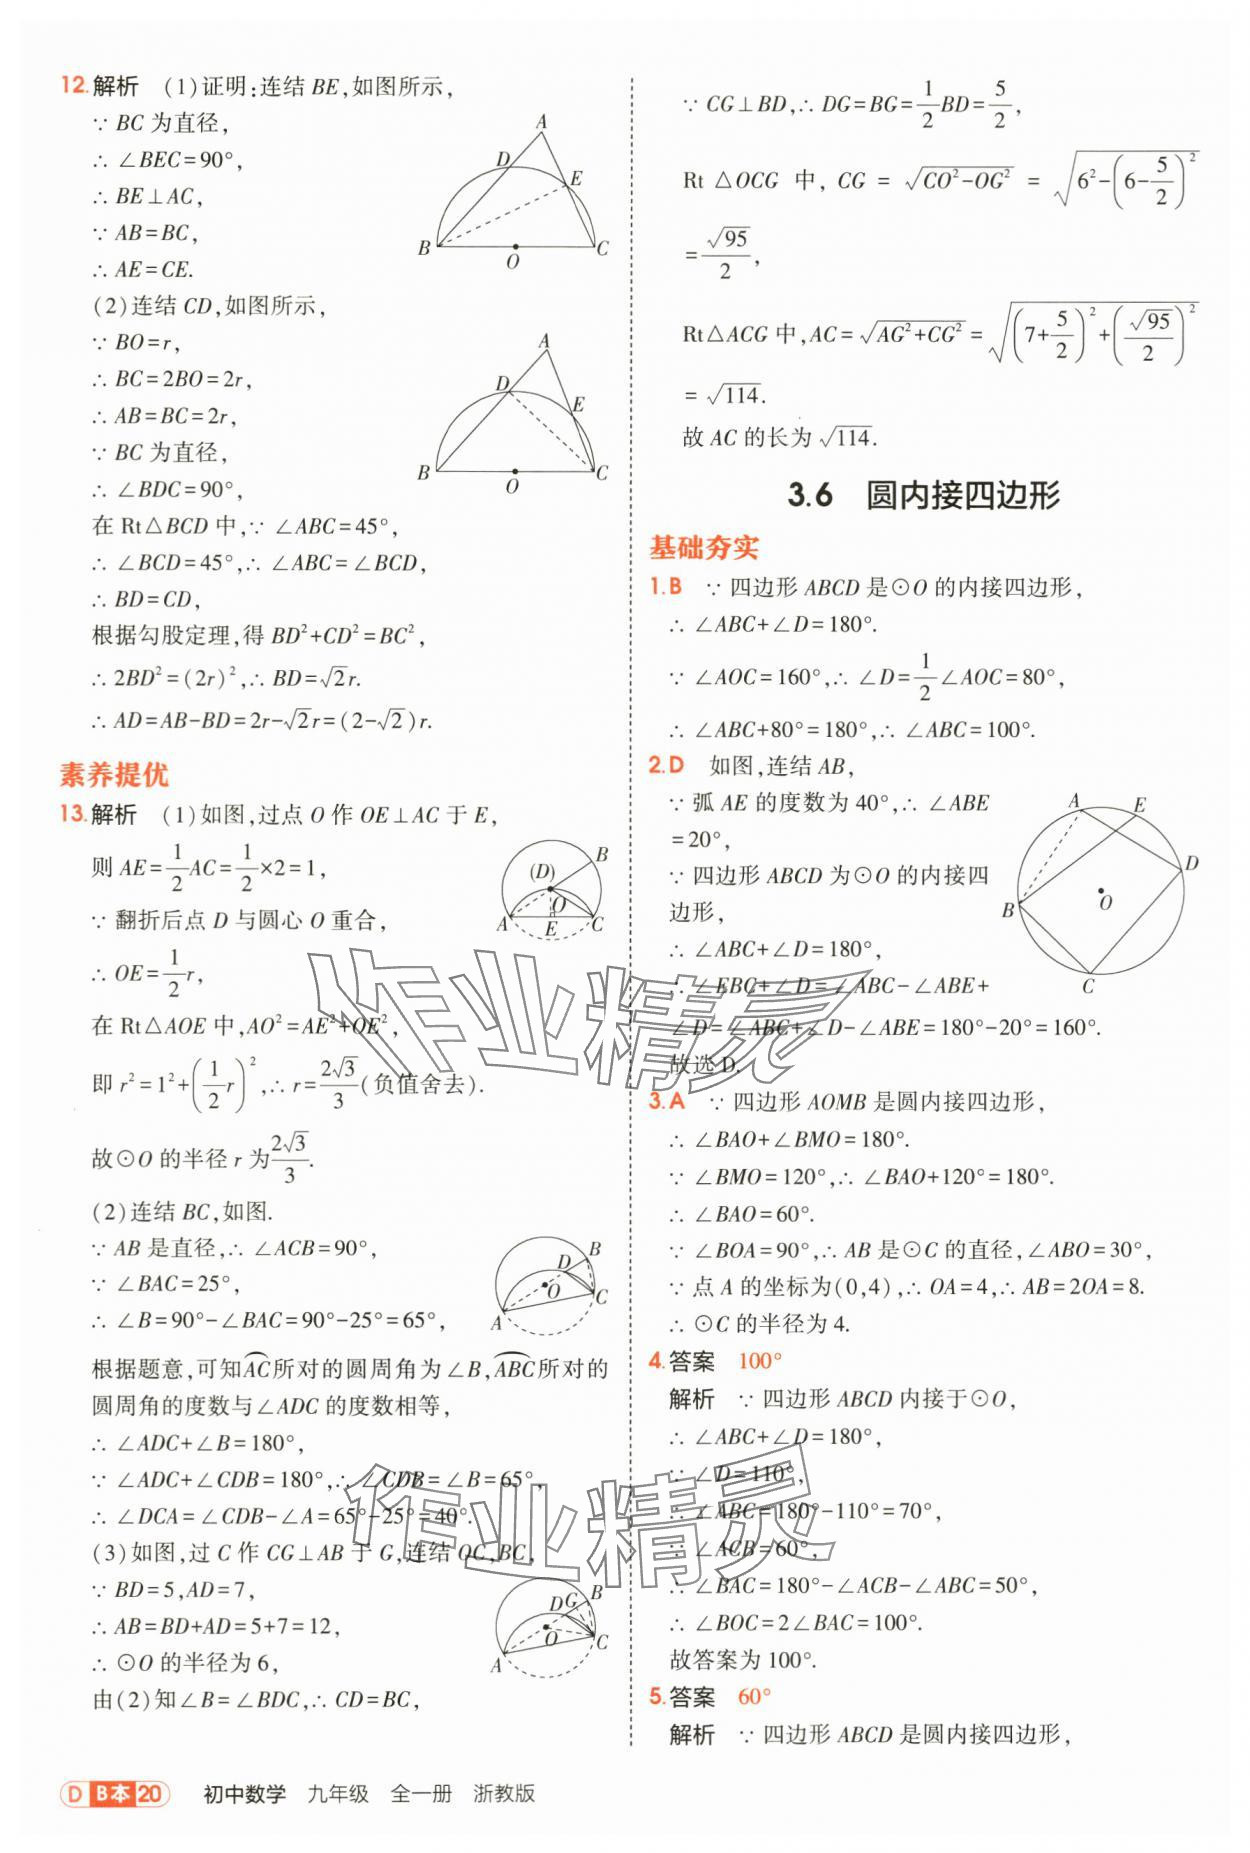 12.解析 (1)证明:连结BE,如图所示,
∵ BC为直径,
∴ ∠BEC=90°,
∴ BE⊥AC,
∵ AB=BC,
∴ AE=CE.
(2)连结CD,如图所示,
∵ BO=r,
∴ BC=2BO=2r,
∴ AB=BC=2r,
∵ BC为直径,
∴ ∠BDC=90°,
在Rt△BCD中,∵ ∠ABC=45°,
∴ ∠BCD=45°,∴ ∠ABC=∠BCD,
∴ BD=CD,
根据勾股定理,得BD²+CD²=BC²,
∴ 2BD²=(2r)²,∴ BD=√2r.
∴ AD=AB-BD=2r-√2r=(2-√2)r.
A
D
E
B
O
C
A
D
E
B
O
C
素养提优
13.解析 (1)如图,过点O作OE⊥AC于E,
则AE=1/2AC=1/2×2=1,
∵ 翻折后点D与圆心O重合,
∴ OE=1/2r,
在Rt△AOE中,AO²=AE²+OE²,
即r²=1²+(1/2r)²,∴ r=2√3/3(负值舍去).
故⊙O的半径r为2√3/3.
(2)连结BC,如图.
∵ AB是直径,∴ ∠ACB=90°,
∵ ∠BAC=25°,
∴ ∠B=90°-∠BAC=90°-25°=65°,
根据题意,可知AC所对的圆周角为∠B,ABC所对的
圆周角的度数与∠ADC的度数相等,
∴ ∠ADC+∠B=180°,
∵ ∠ADC+∠CDB=180°,∴ ∠CDB=∠B=65°,
∴ ∠DCA=∠CDB-∠A=65°-25°=40°.
(3)如图,过C作CG⊥AB于G,连结OC,BC,
∵ BD=5,AD=7,
∴ AB=BD+AD=5+7=12,
∴ ⊙O的半径为6,
由(2)知∠B=∠BDC,∴ CD=BC,
B
(D)
O
A
E
C
B
D
O
C
A
B
D G
O
C
A
∵ CG⊥BD,∴ DG=BG=1/2BD=5/2,
Rt△OCG中, CG = √(CO²-OG²) = √(6²-(6-5/2)²)
=√95/2,
Rt△ACG中,AC=√(AG²+CG²)=√((7+5/2)²+(√95/2)²)
=√114.
故AC的长为√114.
3.6 圆内接四边形
基础夯实
1.B ∵ 四边形ABCD是⊙O的内接四边形,
∴ ∠ABC+∠D=180°.
∵ ∠AOC=160°,∴ ∠D=1/2∠AOC=80°,
∴ ∠ABC+80°=180°,∴ ∠ABC=100°.
2.D 如图,连结AB,
∵ 弧AE的度数为40°,∴ ∠ABE
=20°,
∵ 四边形ABCD为⊙O的内接四
边形,
∴ ∠ABC+∠D=180°,
∴ ∠EBC+∠D=∠ABC-∠ABE+
∠D=∠ABC+∠D-∠ABE=180°-20°=160°.
故选D.
A
E
D
B
O
C
3.A ∵ 四边形AOMB是圆内接四边形,
∴ ∠BAO+∠BMO=180°.
∵ ∠BMO=120°,∴ ∠BAO+120°=180°.
∴ ∠BAO=60°.
∵ ∠BOA=90°,∴ AB是⊙C的直径,∠ABO=30°,
∵ 点A的坐标为(0,4),∴ OA=4,∴ AB=2OA=8.
∴ ⊙C的半径为4.
4.答案 100°
解析 ∵ 四边形ABCD内接于⊙O,
∴ ∠ABC+∠D=180°,
∵ ∠D=110°,
∴ ∠ABC=180°-110°=70°,
∵ ∠ACB=60°,
∴ ∠BAC=180°-∠ACB-∠ABC=50°,
∴ ∠BOC=2∠BAC=100°.
故答案为100°.
5.答案 60°
解析 ∵ 四边形ABCD是圆内接四边形,
作业精灵
作业精灵
D B本 20 初中数学 九年级 全一册 浙教版